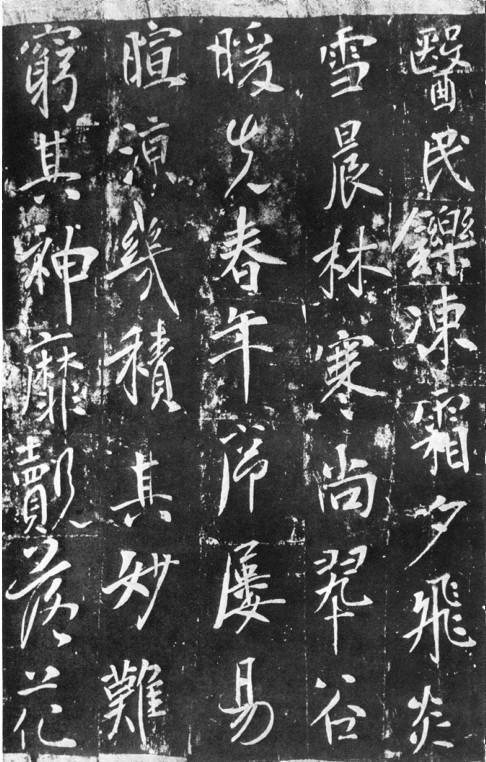 醫民鑠凍霜夕飛炎
雪晨林寒尚翠谷
暖先春年帝屢易
暄涼幾積其妙難
窮其神靡覿落花